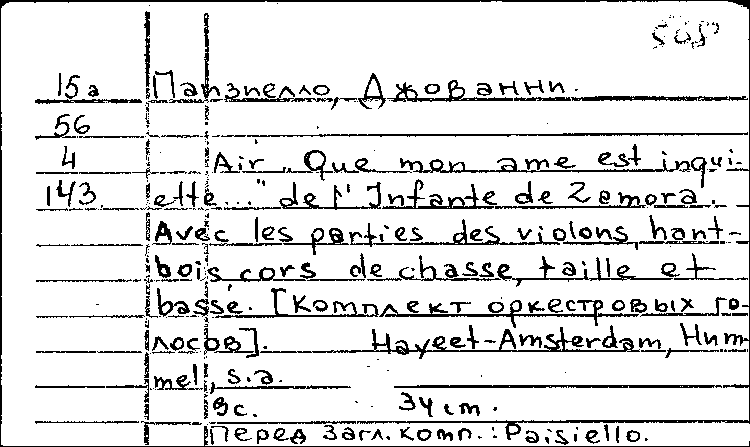 505
15а Паизпелло, Джованни.
56
4 Air „Que mon ame est inqui-
143. ette..." de l'Infante de Zamora.
Avec les parties des violons, hant-
bois cors de chasse, taille et
basse. [Комплект оркестровых го-
лосов]. Hayeet-Amsterdam, Hum-
mel, s.a.
9с. 34 cm.
Перед загл. комп.: Paisiello.